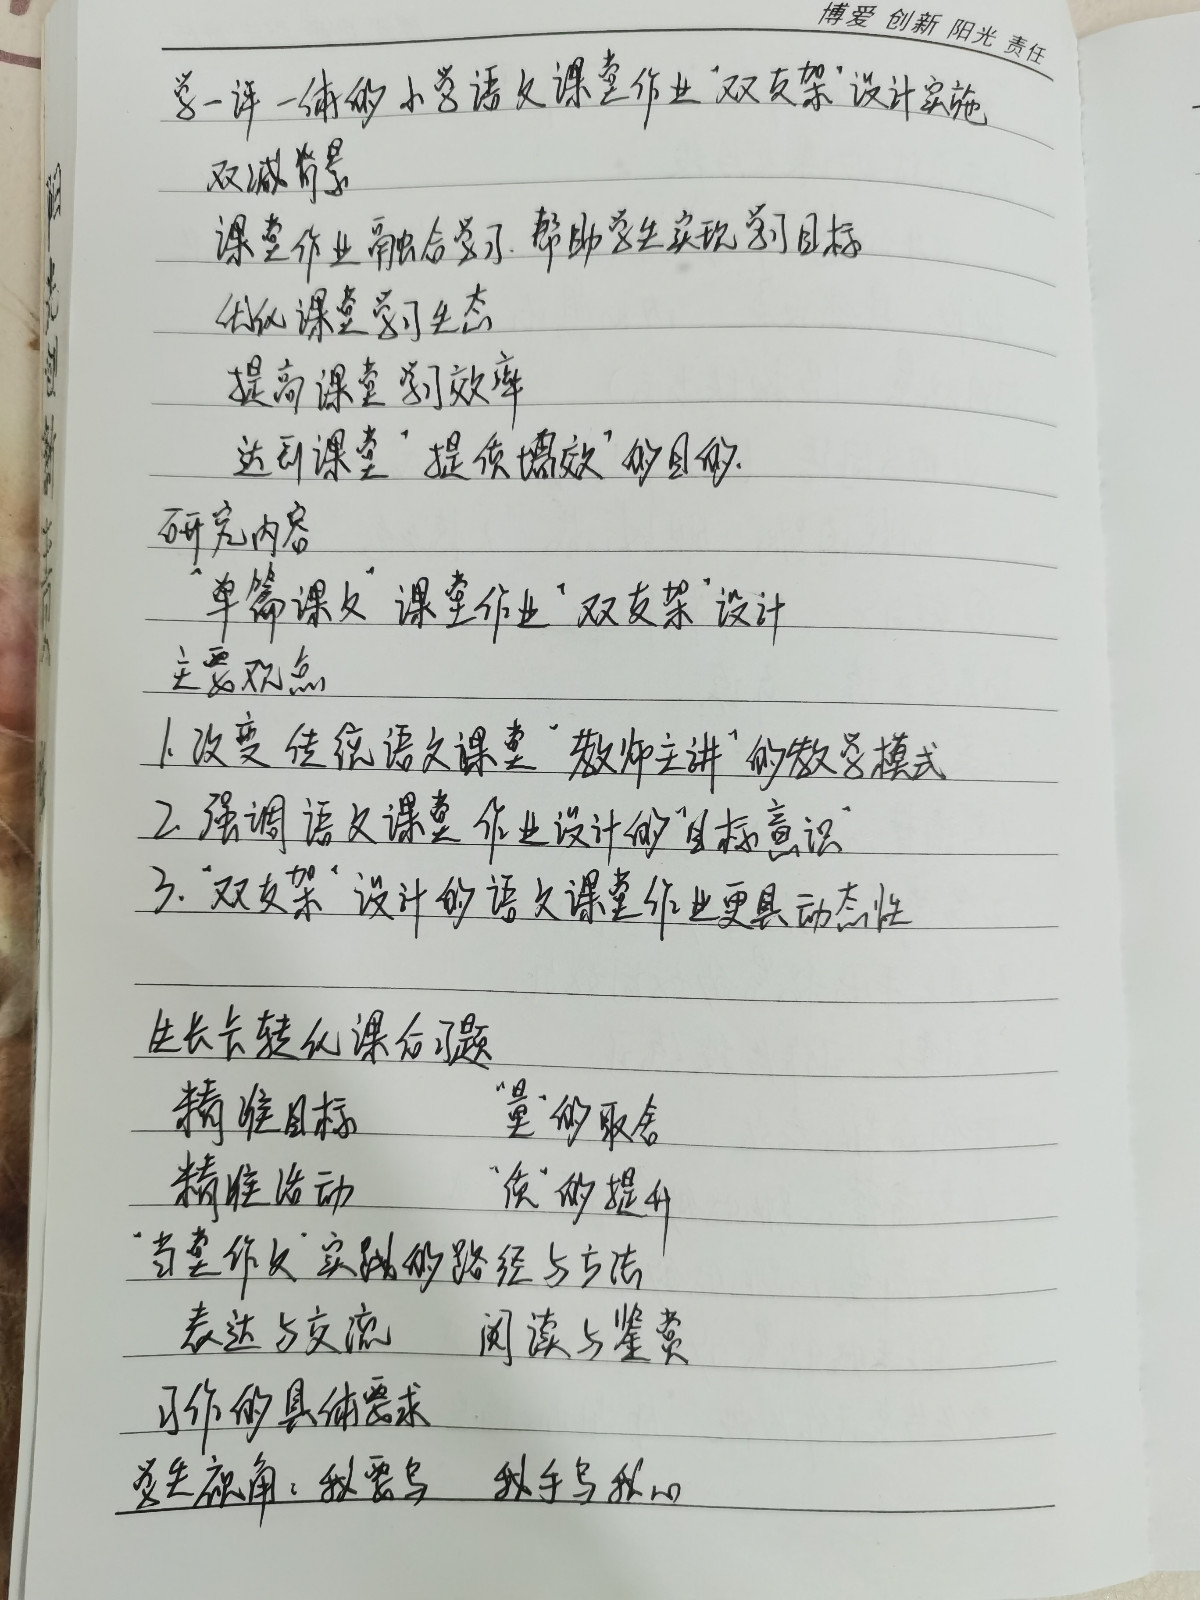 博爱 创新 阳光 责任
学一评一体的小学语文课堂作业“双支架”设计实施
双减背景
课堂作业融合学习.帮助学生实现学习目标
优化课堂学习生态
提高课堂学习效率
达到课堂“提质增效”的目的.
研究内容
“单篇课文”课堂作业“双支架”设计
主要观点
1.改变传统语文课堂“教师主讲”的教学模式
2.强调语文课堂作业设计的“目标意识”
3.“双支架”设计的语文课堂作业更具动态性
生长长转化课后习题
精准目标 “量”的取舍
精准活动 “质”的提升
“当堂作文”实践的路径与方法
表达与交流 阅读与鉴赏
习作的具体要求
学生视角：我要写 我手写我心